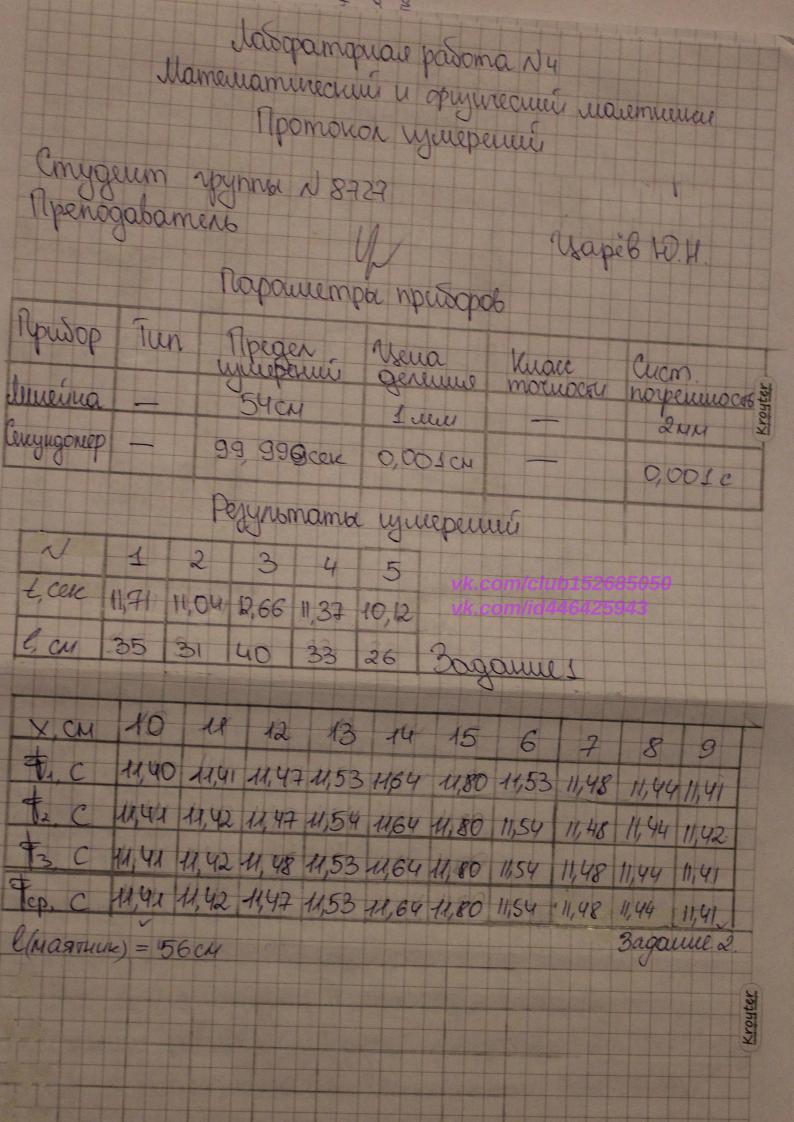 Лабораторная работа N4
Математический и физический маятники
Протокол измерений
Студент группы N 8727
Преподаватель Царёв Ю.Н.
Параметры приборов
Прибор Тип Предел измерений Цена деления Класс точности Сист. погрешность
Линейка — 54см 1мм — 2мм
Секундомер — 99,999сек 0,001см — 0,001с
Результаты измерений
N 1 2 3 4 5
t, сек 11,71 11,04 12,66 11,37 10,12
l, см 35 31 40 33 26 Задание 1
vk.com/club152685050
vk.com/id446425943
X, см 10 11 12 13 14 15 6 7 8 9
T1, с 11,40 11,41 11,47 11,53 11,64 11,80 11,53 11,48 11,44 11,41
T2, с 11,41 11,42 11,47 11,54 11,64 11,80 11,54 11,48 11,44 11,42
T3, с 11,41 11,42 11,48 11,53 11,64 11,80 11,54 11,48 11,44 11,41
Tср, с 11,41 11,42 11,47 11,53 11,64 11,80 11,54 11,48 11,44 11,41
l(маятник) = 56см Задание 2.
Kroyter
Kroyter